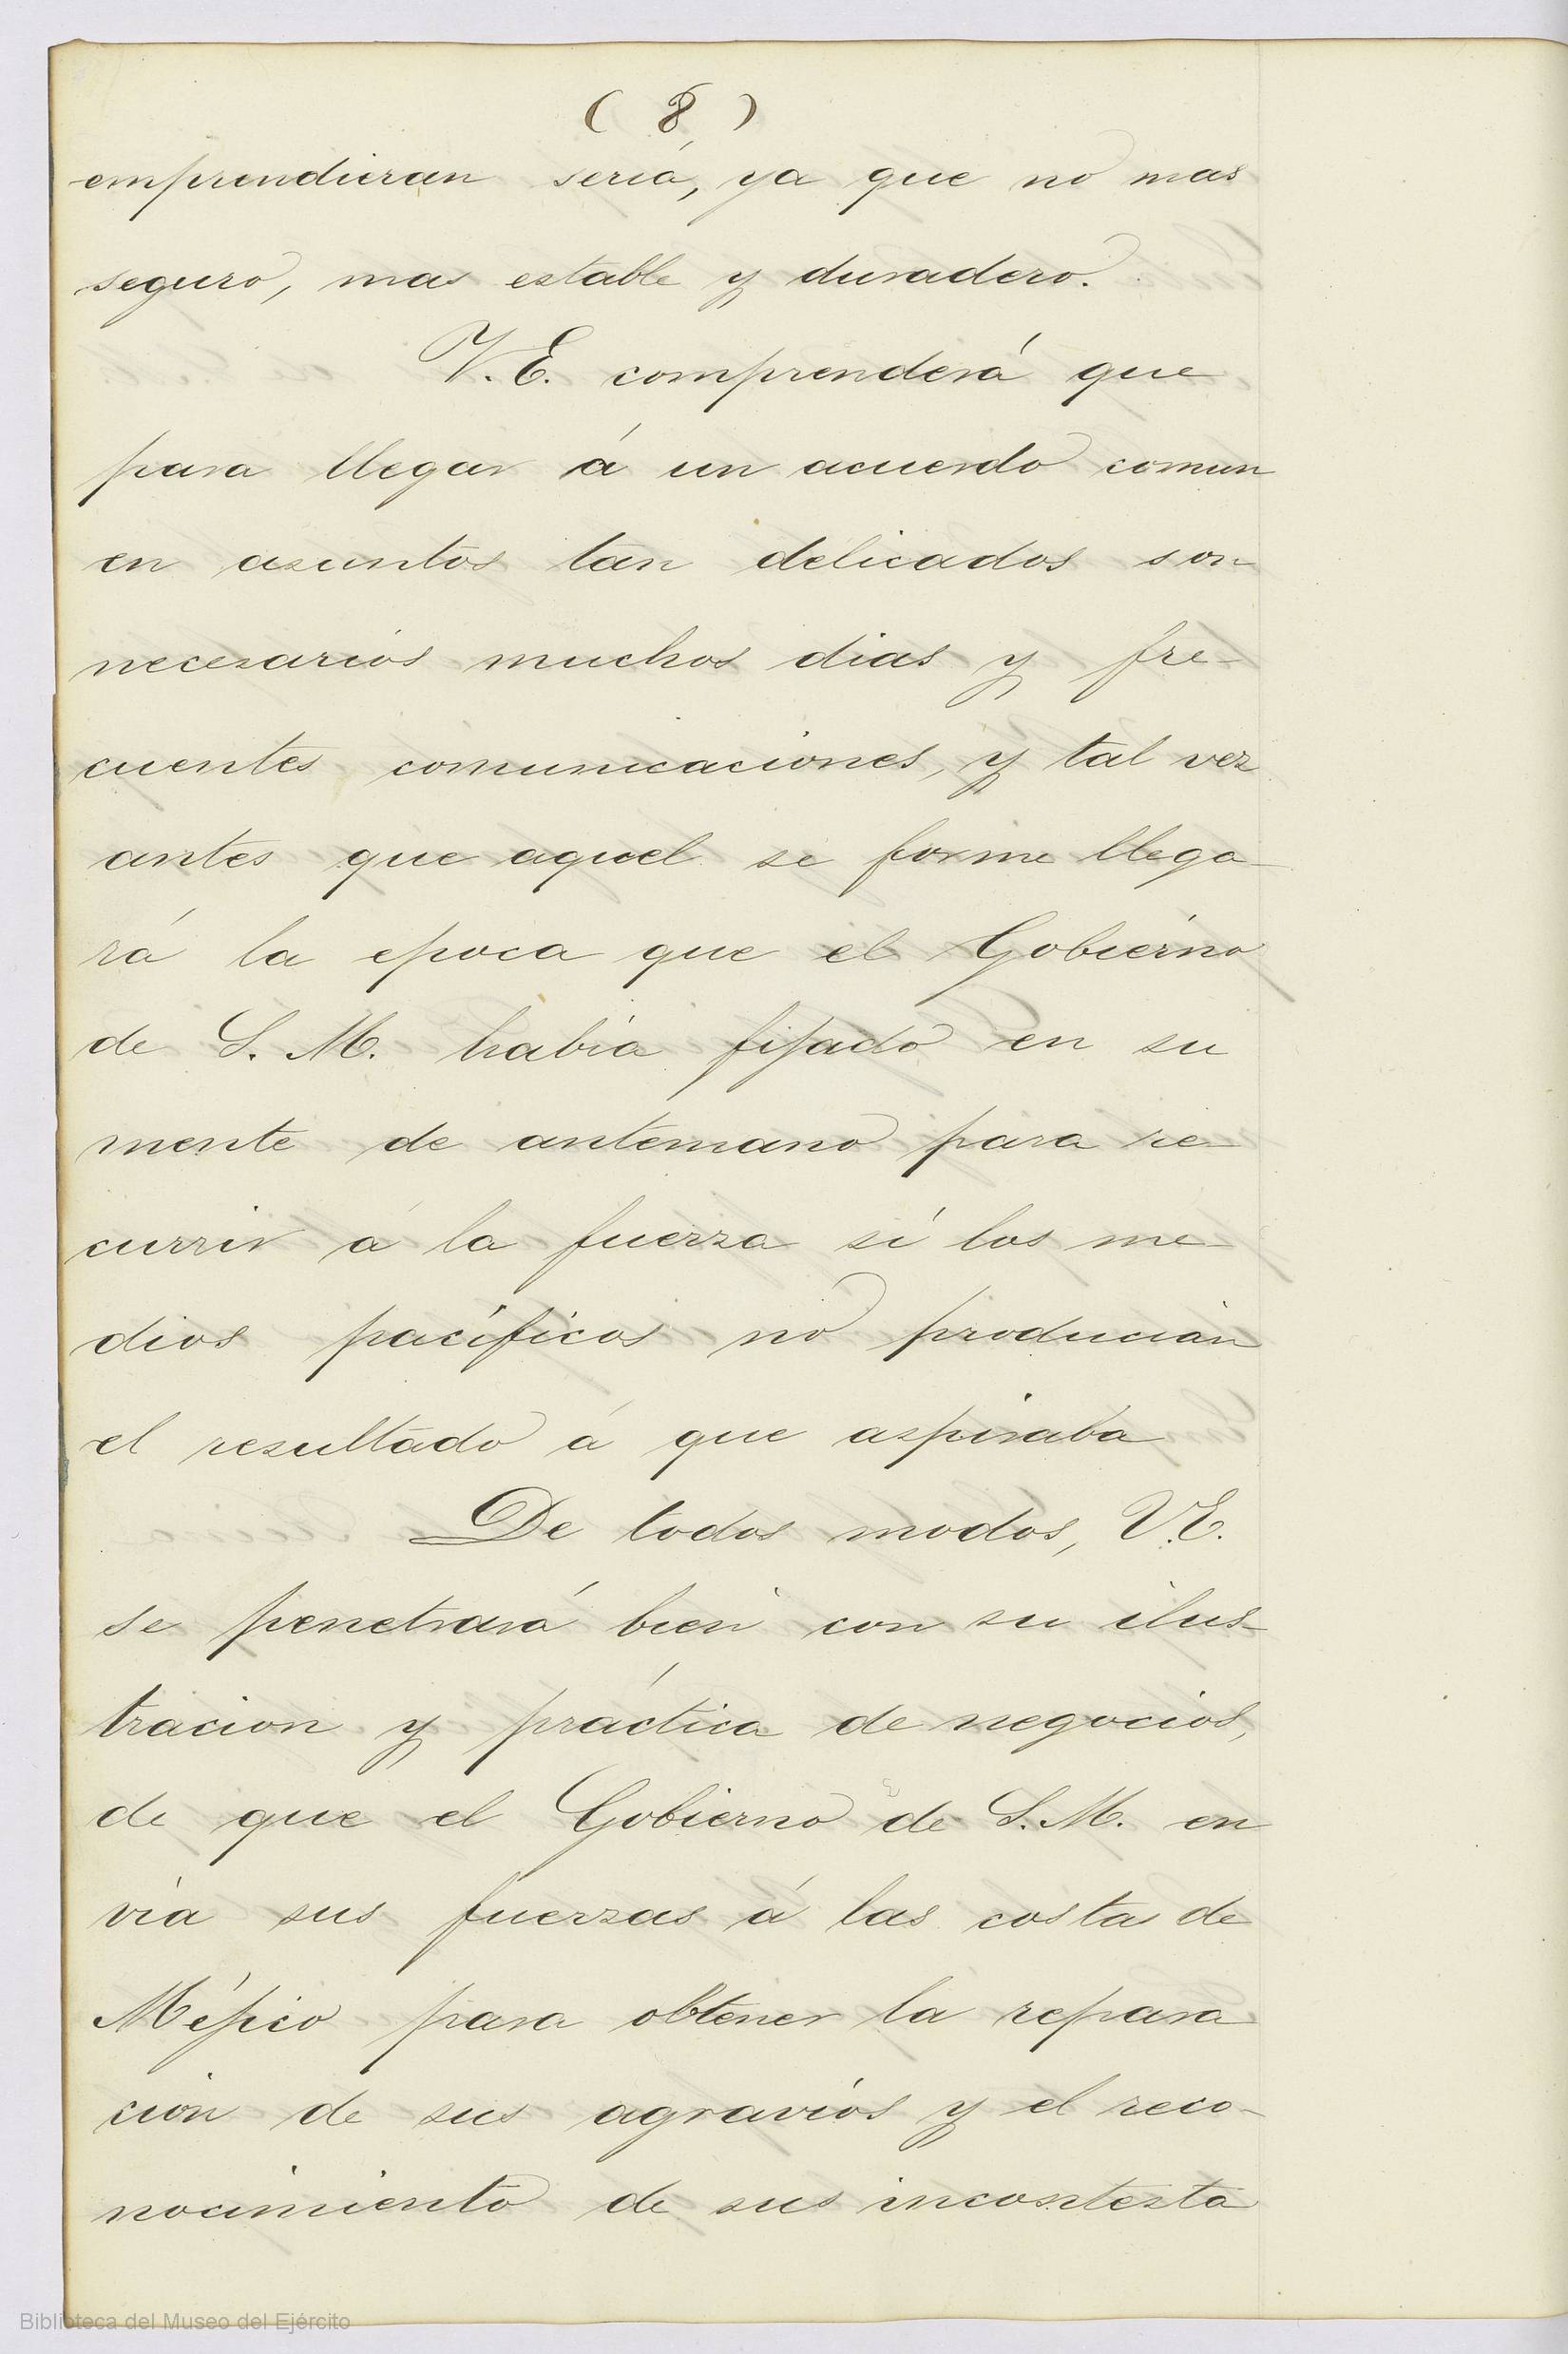 ( 8 )
emprendieran sería, ya que no mas
seguro, mas estable y duradero.
V. E. comprenderá que
para llegar á un acuerdo comun
en asuntos tan delicados son
necesarios muchos dias y fre-
cuentes comunicaciones, y tal vez
antes que aquel se forme llega-
rá la epoca que el Gobierno
de S. M. habia fijado en su
mente de antemano para re-
currir á la fuerza si los me-
dios pacíficos no producian
el resultado á que aspiraba
De todos modos, V.E.
se penetrará bien con su ilus-
tracion y práctica de negocios,
de que el Gobierno de S. M. en
via sus fuerzas á las costas de
Méjico para obtener la repara
cion de sus agravios y el reco-
nocimiento de sus incontesta
Biblioteca del Museo del Ejército